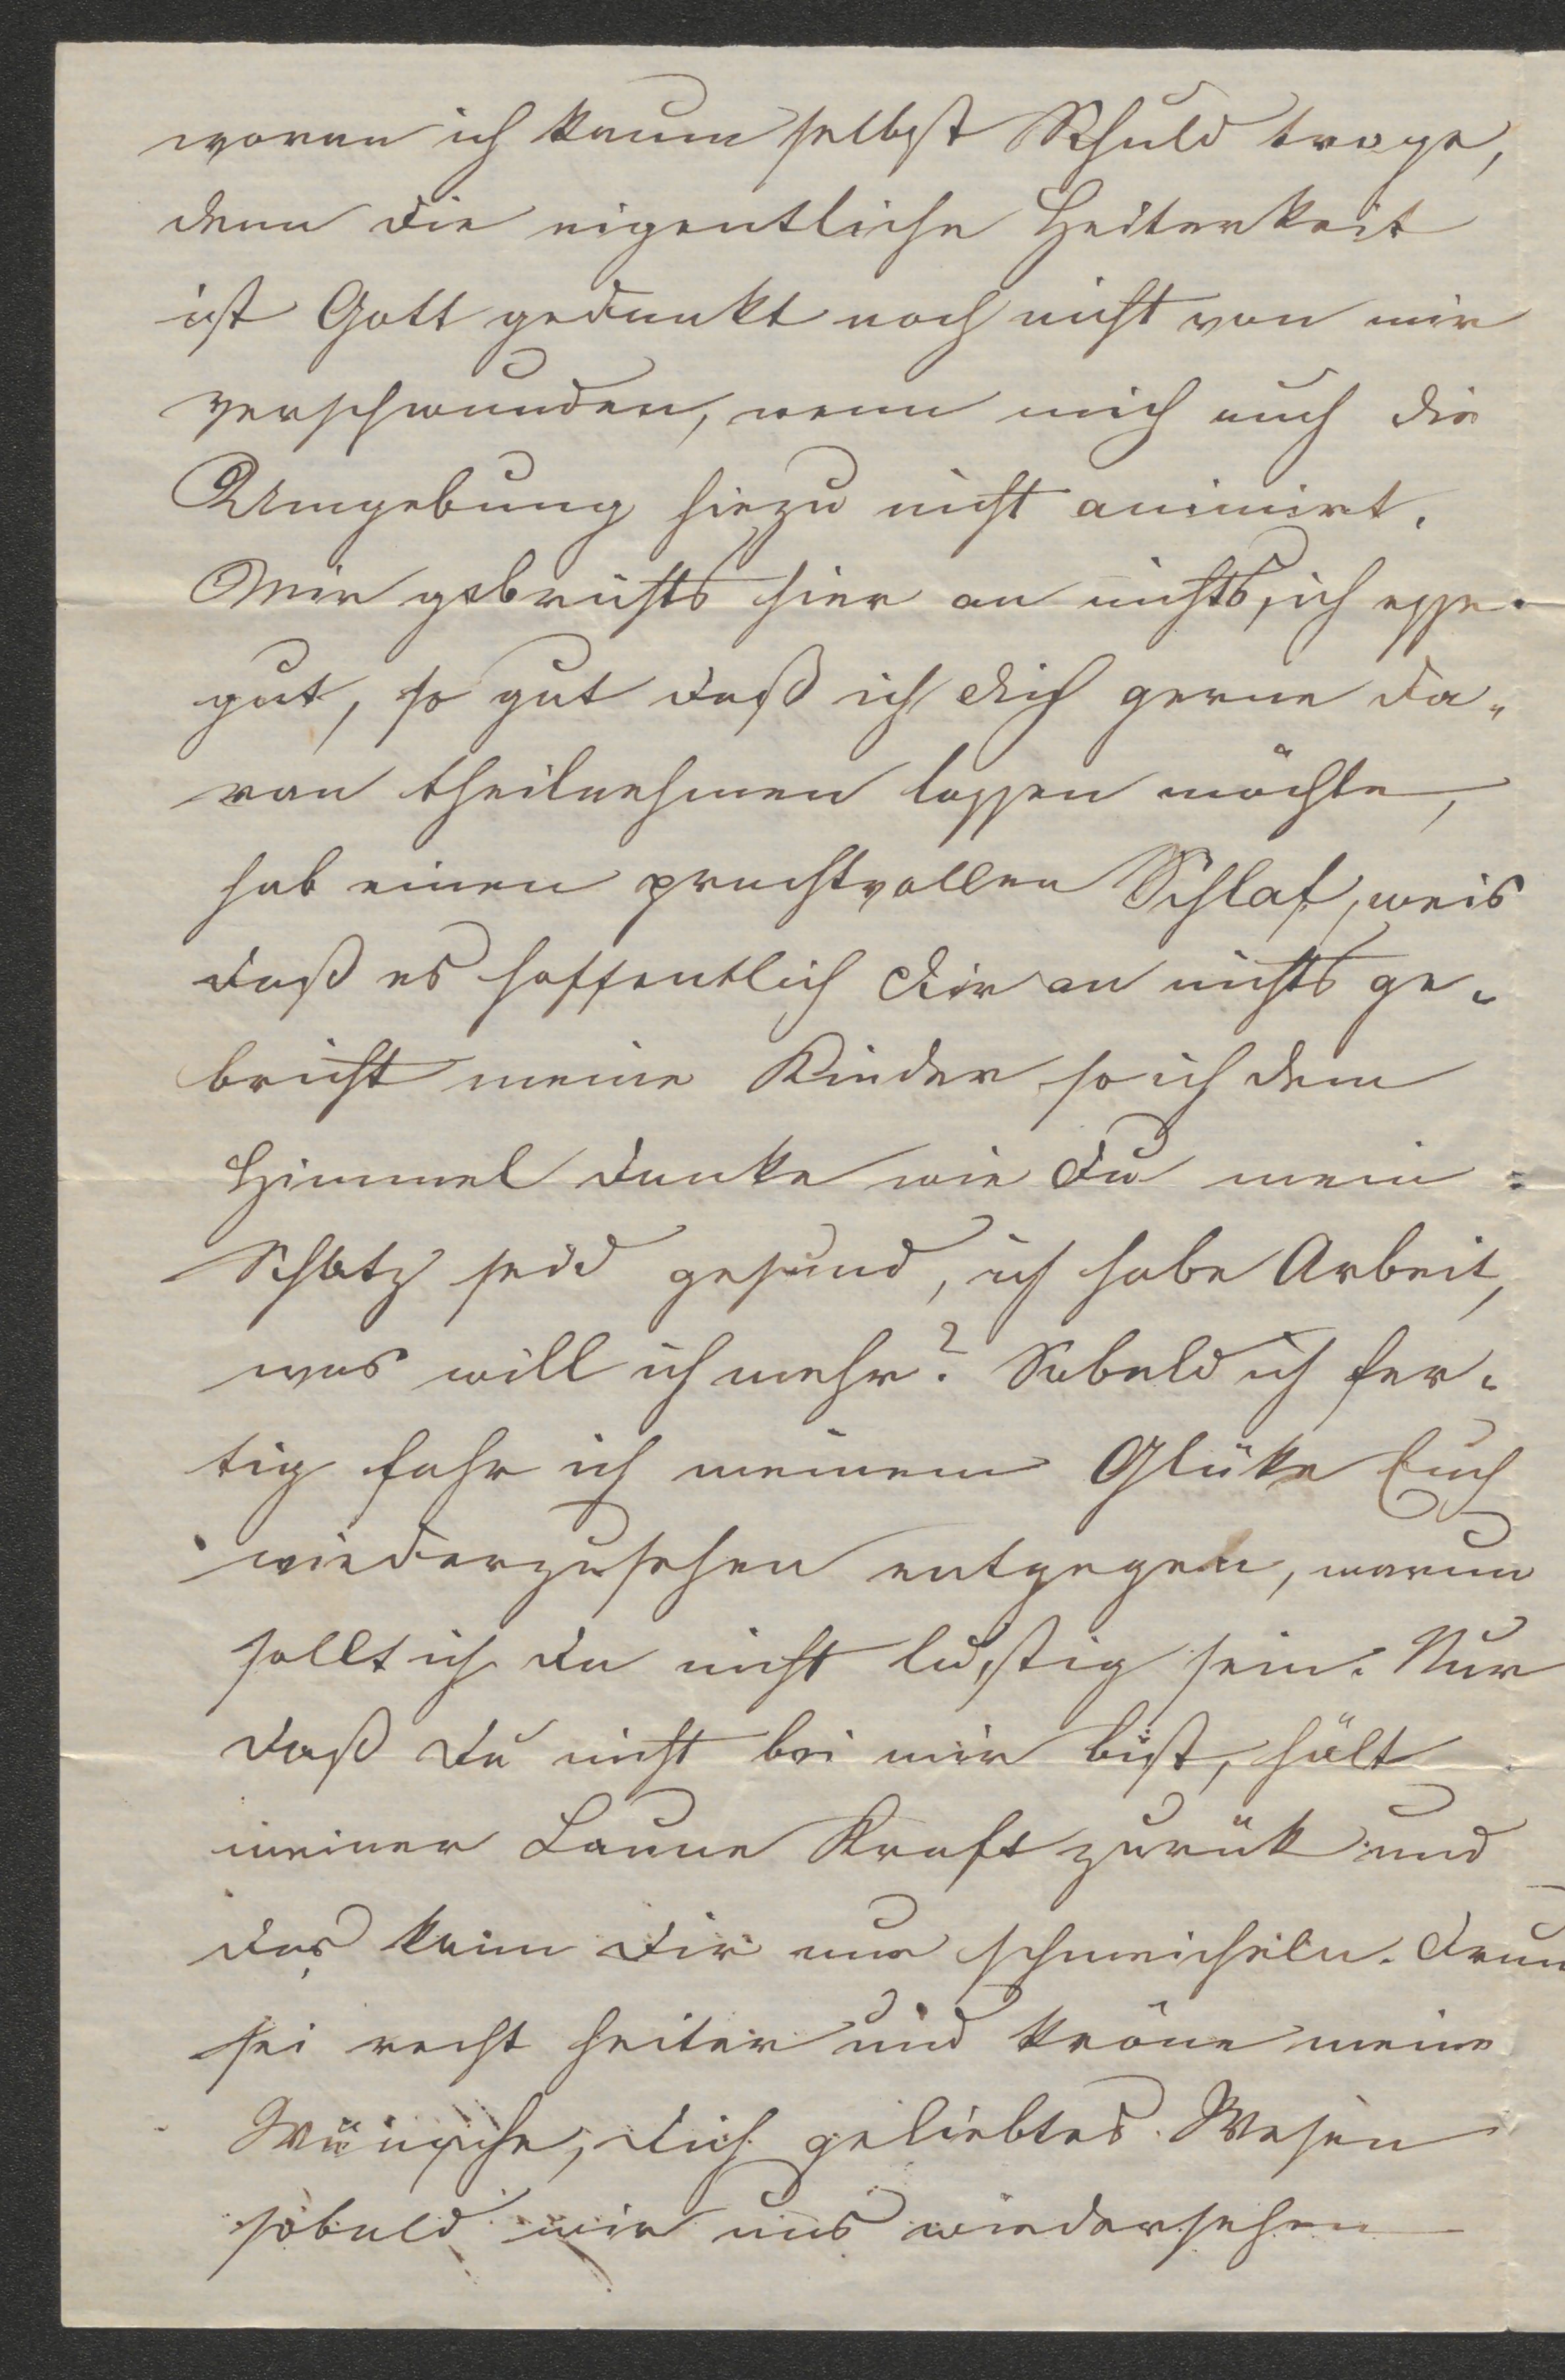 woran ich kaum selbst Schuld trage,
denn die eigentliche Heiterkeit
ist Gott gedankt noch nicht von mir
verschwunden, wenn mich auch die
Umgebung hiezu nicht animirt.
Mir gebrichts hier an nichts, ich esse
gut, so gut daß ich dich gerne da„
ran theilnehmen lassen möchte,
hab einen prachtvollen Schlaf, weis
daß es hoffentlich Dir an nichts ge„
bricht meine Kinder so ich dem
Himmel danke wie Du mein
Schatz seid gesund, ich habe Arbeit,
was will ich mehr? Sobald ich fer„
tig fahr ich meinem Glüke Euch
wiederzusehen entgegen, warum
sollt ich da nicht lustig sein. Nur
daß Du nicht bei mir bist, hält
meiner Laune Kraft zurük und
das kann Dir nur schmeicheln. Drum
sei recht heiter und kröne meine
Wünsche, Dich geliebtes Wesen
sobald wir uns wiedersehen